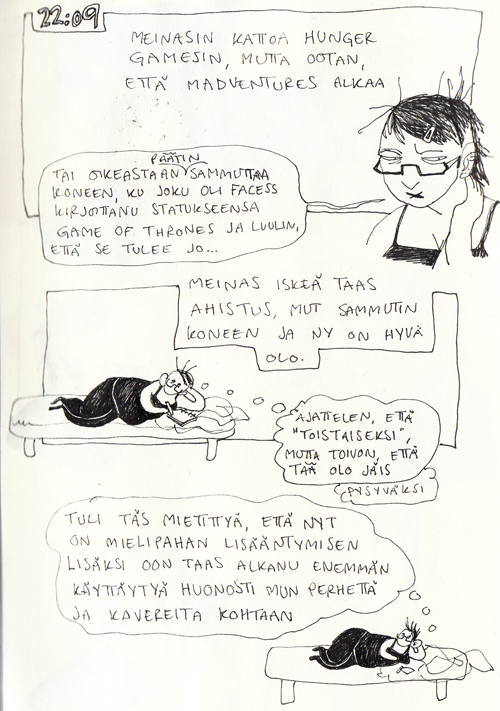 22:09
MEINASIN KATTOA HUNGER
GAMESIN, MUTTA OOTAN,
ETTÄ MADVENTURES ALKAA
PÄÄTIN
TAI OIKEASTAAN SAMMUTTAA
KONEEN, KU JOKU OLI FACESS
KIRJOTTANU STATUKSEENSA
GAME OF THRONES JA LUULIN,
ETTÄ SE TULEE JO...
MEINAS ISKEÄ TAAS
AHISTUS, MUT SAMMUTIN
KONEEN JA NY ON HYVÄ
OLO.
AJATTELEN, ETTÄ
"TOISTAISEKSI",
MUTTA TOIVON, ETTÄ
TÄÄ OLO JÄIS
PYSYVÄKSI
TULI TÄS MIETITTYÄ, ETTÄ NYT
ON MIELIPAHAN LISÄÄNTYMISEN
LISÄKSI OON TAAS ALKANU ENEMMÄN
KÄYTTÄYTYÄ HUONOSTI MUN PERHETTÄ
JA KAVEREITA KOHTAAN